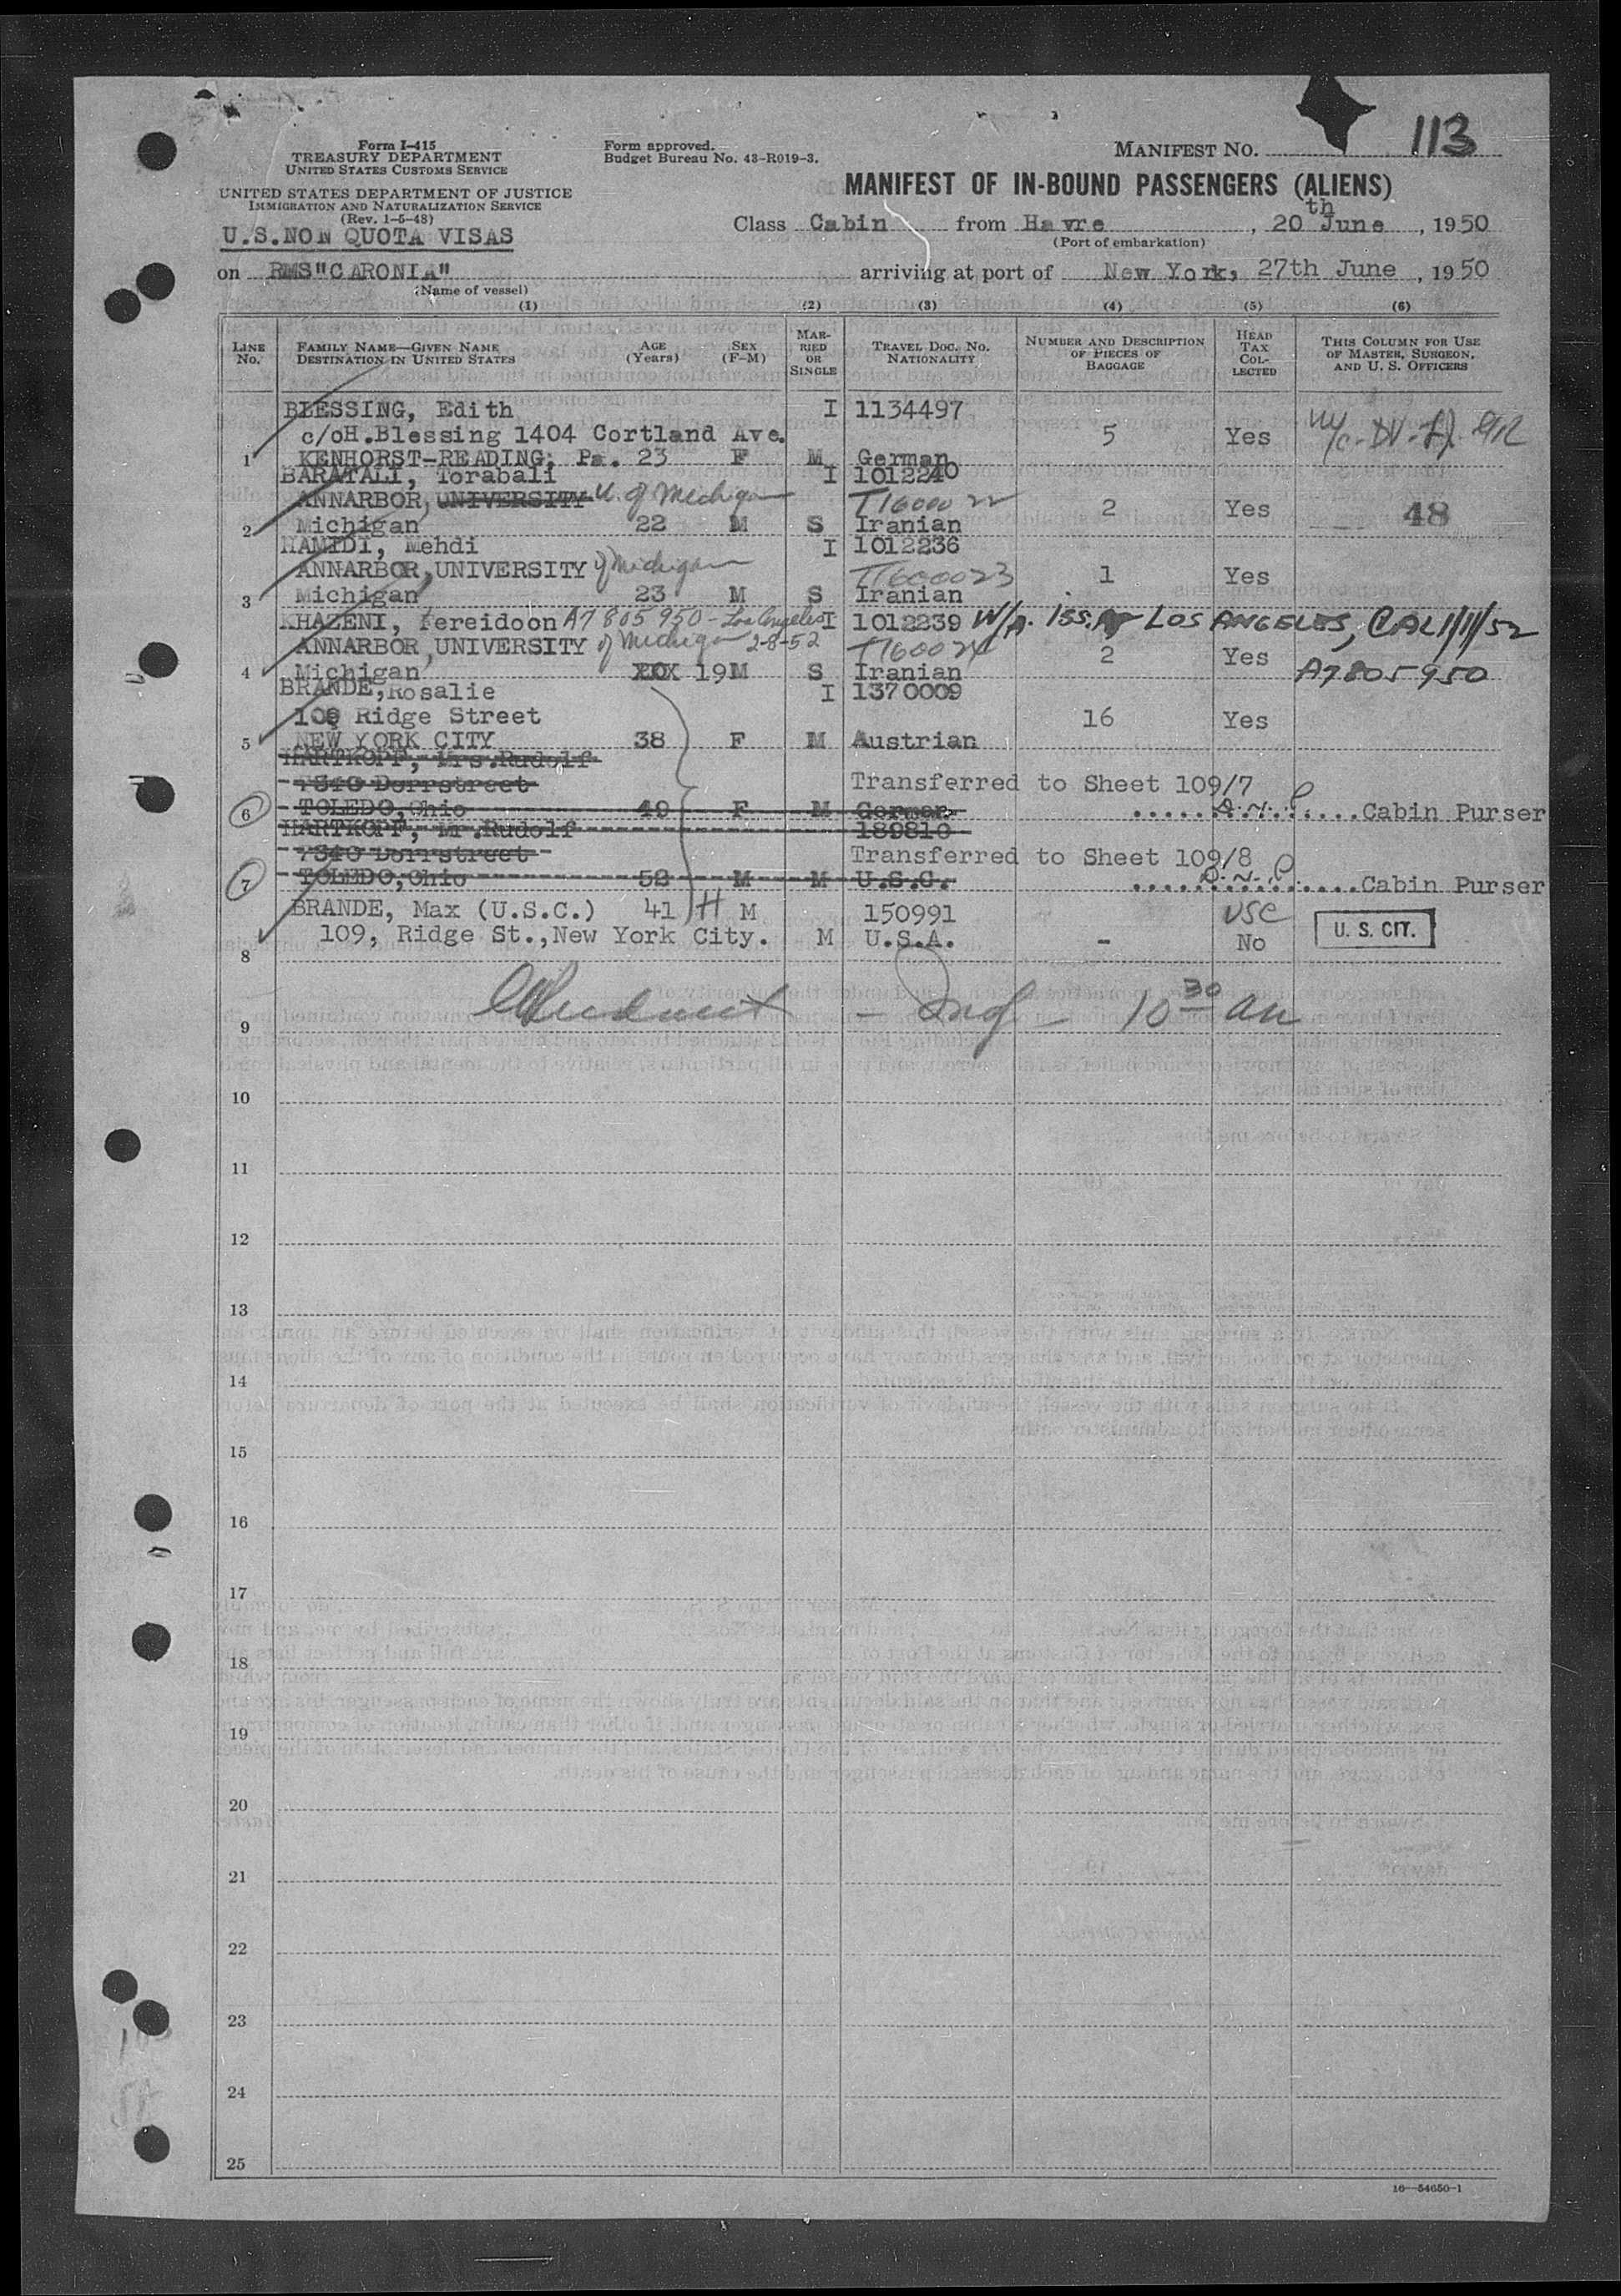 Form I-415
TREASURY DEPARTMENT
UNITED STATES CUSTOMS SERVICE
UNITED STATES DEPARTMENT OF JUSTICE
IMMIGRATION AND NATURALIZATION SERVICE
(Rev. 1-5-48)
U.S.NON QUOTA VISAS
Form approved.
Budget Bureau No. 43-R019-3.
MANIFEST NO. 113
MANIFEST OF IN-BOUND PASSENGERS (ALIENS)
Class Cabin from Havre, 20th June, 1950
(Port of embarkation)
on RMS"CARONIA" arriving at port of New York, 27th June, 1950
(Name of vessel)
(1) (2) (3) (4) (5) (6)
LINE NO.
FAMILY NAME—GIVEN NAME
DESTINATION IN UNITED STATES
AGE (Years)
SEX (F-M)
MARRIED OR SINGLE
TRAVEL DOC. NO. NATIONALITY
NUMBER AND DESCRIPTION OF PIECES OF BAGGAGE
HEAD TAX COLLECTED
THIS COLUMN FOR USE OF MASTER, SURGEON, AND U. S. OFFICERS
BLESSING, Edith I 1134497
c/oH.Blessing 1404 Cortland Ave. 5 Yes
1 KENHORST-READING, Pa. 23 F M German
BARATALI, Torabali I 1012240
ANNARBOR, UNIVERSITY U. of Michigan T1600022 2 Yes 48
2 Michigan 22 M S Iranian
HAMIDI, Mehdi I 1012236
ANNARBOR, UNIVERSITY of Michigan T1600023 1 Yes
3 Michigan 23 M S Iranian
KHAZENI, Fereidoon A7805950 - Los Angeles I 1012239 W/A. Iss. At LOS ANGELES, CAL 1/11/52
ANNARBOR, UNIVERSITY of Michigan 2-8-52 T160024 2 Yes A7805950
4 Michigan XXX 19 M S Iranian
BRANDE, Rosalie I 1370009
109 Ridge Street 16 Yes
5 NEW YORK CITY 38 F M Austrian
HARTKOPF, Mrs.Rudolf
7340 Dorrstreet Transferred to Sheet 109/7
6 TOLEDO, Ohio 49 F M German Cabin Purser
HARTKOPF, Mr.Rudolf 189810
7340 Dorrstreet Transferred to Sheet 109/8
7 TOLEDO, Ohio 52 M M U.S.C. Cabin Purser
BRANDE, Max (U.S.C.) 41 H M 150991 USC
109, Ridge St.,New York City. M U.S.A. - No U. S. CIT.
8
9 10 30 am
10
11
12
13
14
15
16
17
18
19
20
21
22
23
24
25
16—54650-1